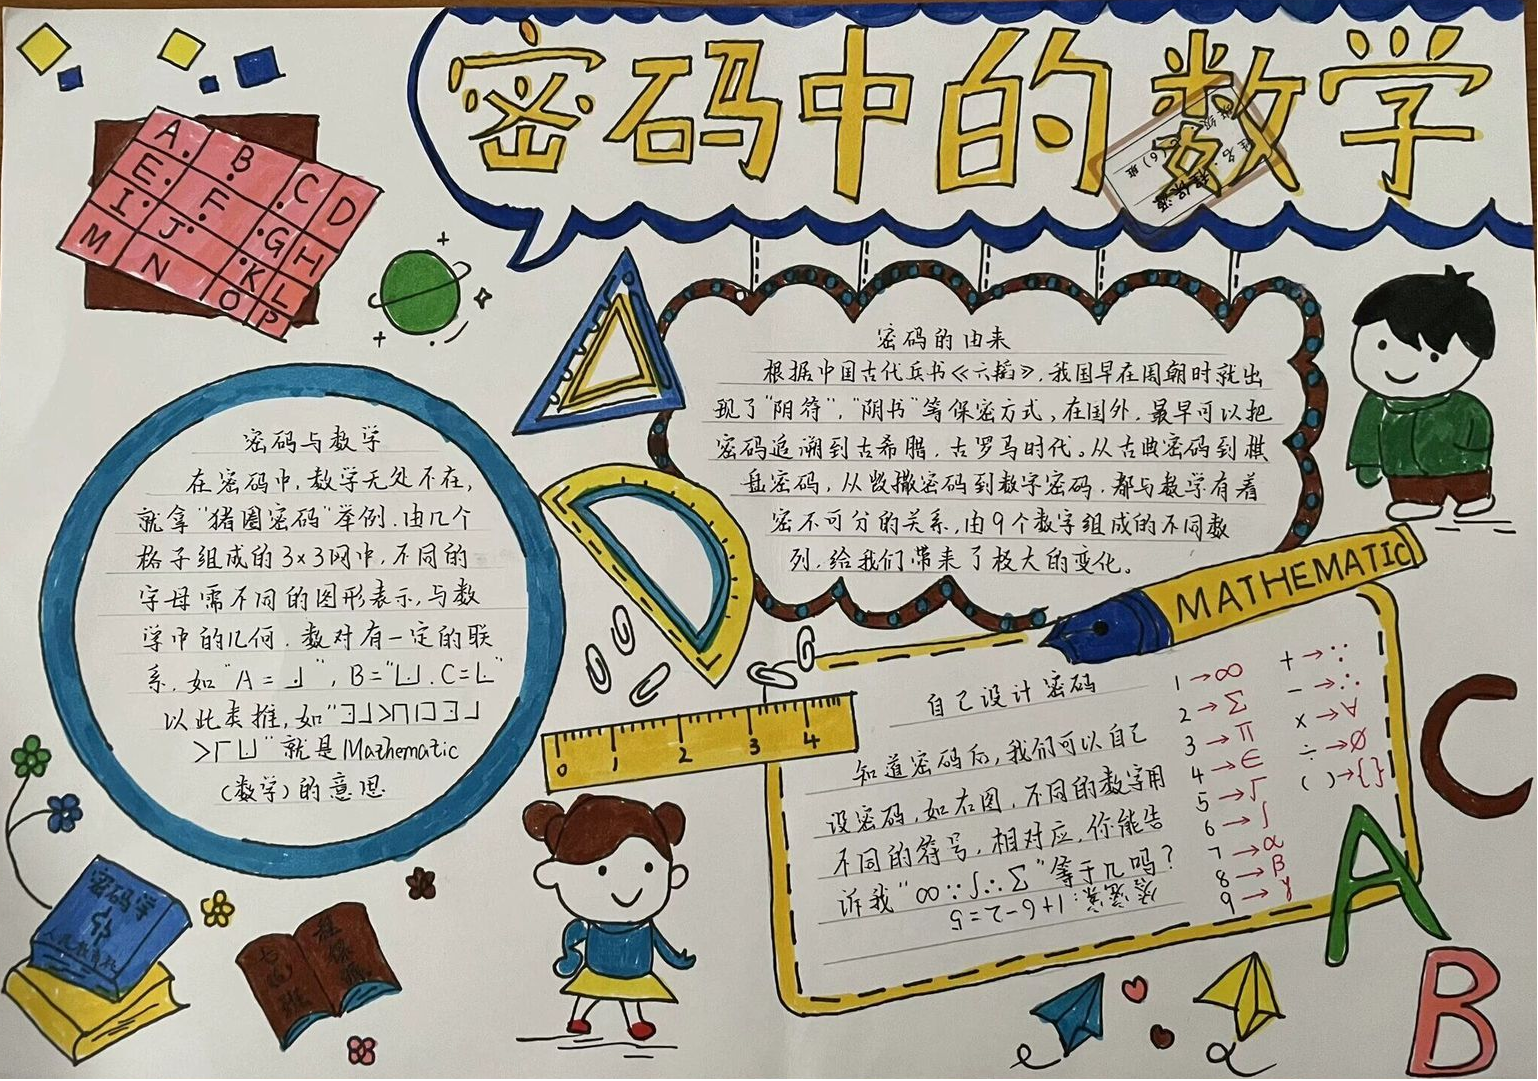 密码中的数学
A B C D
E F G H
I J K L
M N O P
密码的由来
根据中国古代兵书《六韬》，我国早在周朝时就出
现了“阴符”，“阴书”等保密方式，在国外，最早可以把
密码追溯到古希腊，古罗马时代。从古典密码到棋
盘密码，从凯撒密码到数字密码，都与数学有着
密不可分的关系，由9个数字组成的不同数
列，给我们带来了极大的变化。
密码与数学
在密码中，数学无处不在，
就拿“猪圈密码”举例，由几个
格子组成的3×3网中，不同的
字母需不同的图形表示，与数
学中的几何，数对有一定的联
系，如“A=”，B=“，C=”
以此类推，如“
”就是Mathematic
（数学）的意思
0 1 2 3 4
MATHEMATIC
自己设计密码
知道密码后，我们可以自己
设密码，如右图，不同的数字用
不同的符号，相对应，你能告
诉我“∞∵∫∴Σ”等于几吗？
答案：1+6-2=5
1→∞
2→Σ
3→π
4→∈
5→√
6→∫
7→α
8→β
9→γ
+→∵
-→∴
×→∀
÷→Ø
( )→{}
密码学
人民教育版
C
A
B